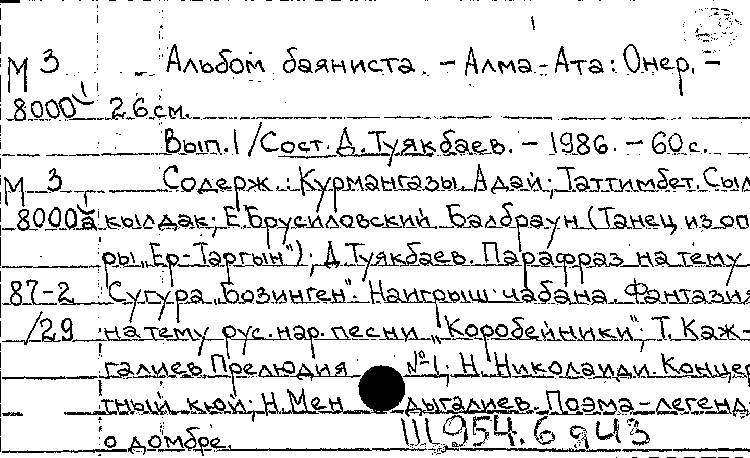 М 3 Альбом баяниста. – Алма-Ата: Онер. –
8000 26 см.
Вып. 1 / Сост. Д. Туякбаев. – 1986. – 60 с.
М 3 Содерж.: Курмангазы. Адай; Таттимбет. Сыл
8000а кылдак; Е. Брусиловский. Балбраун (Танец из оп
ры „Ер-Таргын"); Д. Туякбаев. Парафраз на тему
87-2 Сугура „Бозинген". Наигрыш чабана. Фантазия
/29 на тему рус. нар. песни „Коробейники"; Т. Каж-
галиев. Прелюдия №1; Н. Николаиди. Концер
тный кюй; Н. Мен дыгалиев. Поэма-легенд
о домбре. Ш 954.6 я43